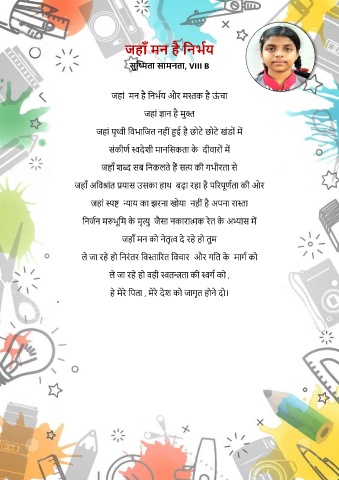 जहाँ मन है निर्भय
सुष्मिता सामनता, VIII B
जहां मन है निर्भय और मस्तक है ऊंचा
जहां ज्ञान है मुक्त
जहां पृथ्वी विभाजित नहीं हुई है छोटे छोटे खंडों में
संकीर्ण स्वदेशी मानसिकता के दीवारों में
जहाँ शब्द सब निकलते हैं सत्य की गभीरता से
जहाँ अविश्रांत प्रयास उसका हाथ बढ़ा रहा है परिपूर्णता की ओर
जहां स्पष्ट न्याय का झरना खोया नहीं है अपना रास्ता
निर्जन मरुभूमि के मृत्यु जैसा नकारात्मक रेत के अभ्यास में
जहाँ मन को नेतृत्व दे रहे हो तुम
ले जा रहे हो निरंतर विस्तारित विचार और गति के मार्ग को
ले जा रहे हो वही स्वतन्त्रता की स्वर्ग को ,
हे मेरे पिता , मेरे देश को जागृत होने दो।